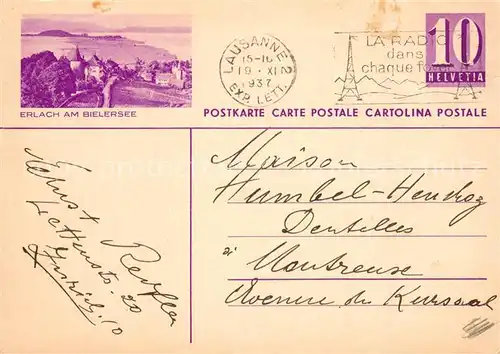 ERLACH AM BIELERSEE
LAUSANNE 2
15-16
19·XI
1937
EXP. LETT.
LA RADIO
dans
chaque
10
HELVETIA
POSTKARTE CARTE POSTALE CARTOLINA POSTALE
Maison
Humbel-Henchoz
Dentelles
à Montreuse
Avenue du Kursaal
Lettenstr. 20
Zürich 10